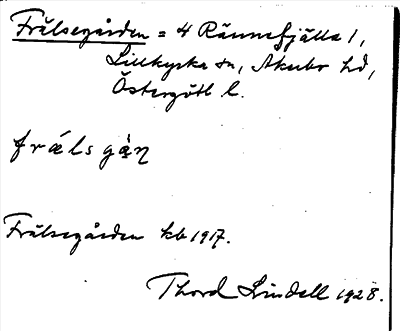 Frälsegården = 4 Rännefjälla 1,
Lillkyrka sn, Åkerbo hd,
Östergötl l.
frǽlsgą́ṇ
Frälsegården kb 1917.
Thord Lindell 1928.